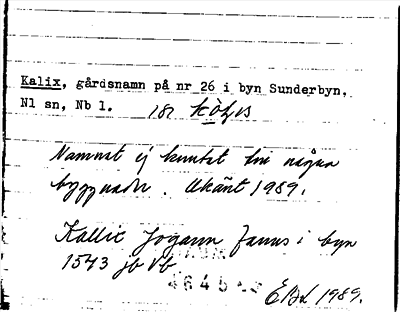 Kalix, gårdsnamn på nr 26 i byn Sunderbyn,
Nl sn, Nb l.
Namnet ej knutet till några
byggnader. Okänt 1989.
Kallix Jogann fanns i byn
1543 jb Vb
EBL 1989.